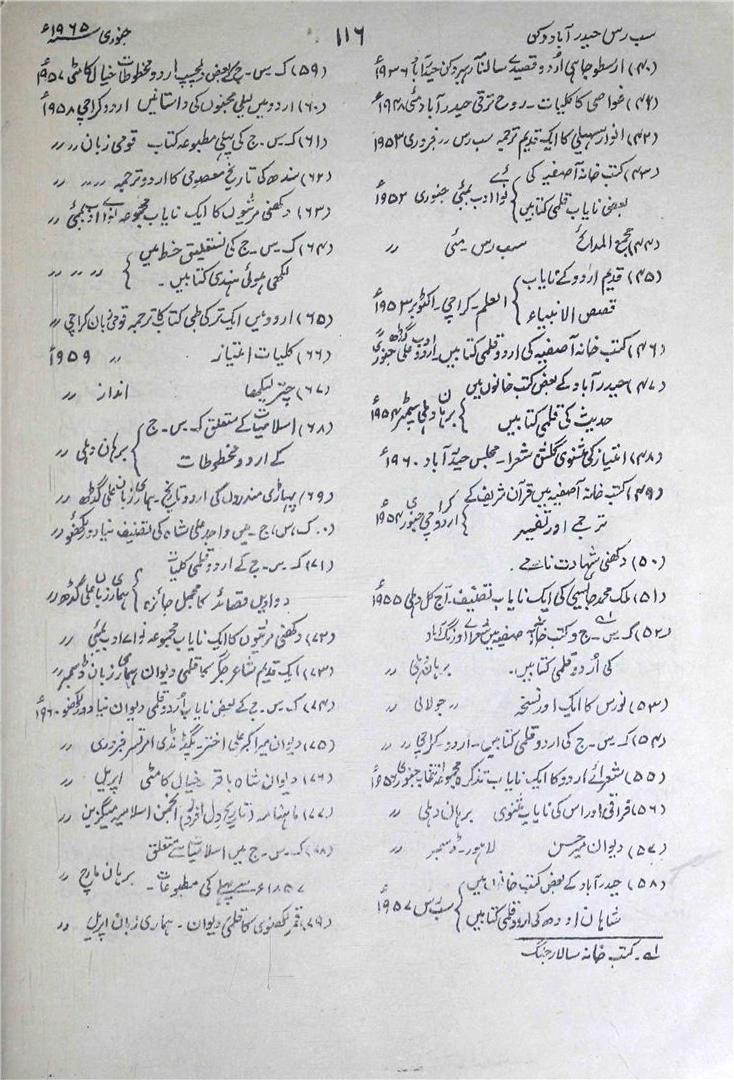 سب رس حیدرآباد دکن
۱۱۶
جنوری ۱۹۶۵ء
(۴۰) ارسطو جاہی اُردو قصیدے سالنامہ رہبر دکن حیدرآباد ۱۹۳۶ء
(۴۱) غواصی کا کلیات - روح ترقی حیدرآباد مئی ۱۹۴۸ء
(۴۲) انوار سہیلی کا ایک قدیم ترجمہ سب رس رر فروری ۱۹۵۳
(۴۳) کتب خانہ آصفیہ کی
بعض نایاب قلمی کتابیں } نوائے ادب بمبئی جنوری ۱۹۵۲ء
(۴۴) مجمع المدائح سب رس مئی رر
(۴۵) قدیم اردو کے نایاب
قصص الانبیاء } العلم - کراچی - اکتوبر ۱۹۵۳ء
(۴۶) کتب خانہ آصفیہ کی اردو قلمی کتابیں - اردو ادب علی گڈھ جنوری رر
(۴۷) حیدرآباد کے بعض کتب خانوں میں
حدیث کی قلمی کتابیں } برہان دہلی ستمبر ۱۹۵۴ء
(۴۸) امتیاز کی مثنوی گلشن شعرا - مجلس حیدرآباد ۱۹۶۰ء
(۴۹) کتب خانہ آصفیہ میں قرآن شریف کے
ترجمے اور تفسیر } اردو کراچی جنوری ۱۹۵۴ء
(۵۰) دکھنی شہادت نامے .
(۵۱) ملک محمد جائسی کی ایک نایاب تصنیف - آج کل دہلی ۱۹۵۵ء
(۵۲) ک - س - ج و کتب خانہ آصفیہ میں شعرائے اورنگ آباد
کی اُردو قلمی کتابیں . برہان دہلی رر
(۵۳) نورس کا ایک اور نسخہ رر جولائی رر
(۵۴) ک - س - ج کی اردو قلمی کتابیں - اردو کراچی رر رر
(۵۵) شعرائے اردو کا ایک نایاب تذکرہ مجموعہ انتخاب جنوری
(۵۶) فراقی اور اس کی نایاب مثنوی برہان دہلی رر
(۵۷) دیوان میر حسن لاہور - دسمبر رر
(۵۸) حیدرآباد کے بعض کتب خانوں میں
شاہان اودھ کی اردو قلمی کتابیں } سب رس ۱۹۵۷ء
؎۱ - کتب خانہ سالار جنگ
(۵۹) ک - س - ج کے بعض دلچسپ اردو مخطوطات خیال کامٹی ۱۹۵۷ء
(۶۰) اردو میں لیلی مجنوں کی داستانیں اردو کراچی ۱۹۵۸ء
(۶۱) ک - س - ج کی پہلی مطبوعہ کتاب قومی زبان رر رر
(۶۲) سندھ کی تاریخ معصومی کا اردو ترجمہ رر رر رر
(۶۳) دکھنی مرثیوں کا ایک نایاب مجموعہ نوائے ادب بمبئی رر
(۶۴) ک - س - ج کی نستعلیق خط میں
لکھی ہوئی ہندی کتابیں - } رر رر رر
(۶۵) اردو میں ایک ترکی طبی کتاب کا ترجمہ قومی زبان کراچی رر
(۶۶) کلیات امتیاز رر ۱۹۵۹ء
(۶۷) چتر لیکھا انداز رر
(۶۸) اسلامیات کے متعلق ک - س - ج
کے اردو مخطوطات } برہان دہلی رر
(۶۹) پہاڑی مندروں کی اردو تاریخ - ہماری زبان علی گڈھ رر
(۷۰) ک، س، ج - میں واجد علی شاہ کی تصنیف نیا دور لکھنؤ رر
(۷۱) ک - س - ج کے اردو قلمی کلیات
دواوین قصائد کا مجمل جائزہ } ہماری زبان علی گڈھ رر
(۷۲) دکھنی مرثیوں کا ایک نایاب مجموعہ نوائے ادب بمبئی رر
(۷۳) ایک قدیم شاعر جگر کا قلمی دیوان ہماری زبان دسمبر رر
(۷۴) ک - س - ج کے بعض نایاب اُردو قلمی دیوان نیا دور لکھنؤ ۱۹۶۰ء
(۷۵) دیوان میر اکبر علی اختر پگڈنڈی امرتسر فروری رر
(۷۶) دیوان شاہ باقر خیال کامٹی اپریل رر
(۷۷) ماہنامہ (تاریخ دل افروز) انجمن اسلامیہ میگزین رر
(۷۸) ک - س - ج میں اسلامیات سے متعلق
۱۸۵۷ء سے پہلے کی مطبوعات - برہان مارچ رر
(۷۹) قمر لکھنوی کا قلمی دیوان - ہماری زبان اپریل رر